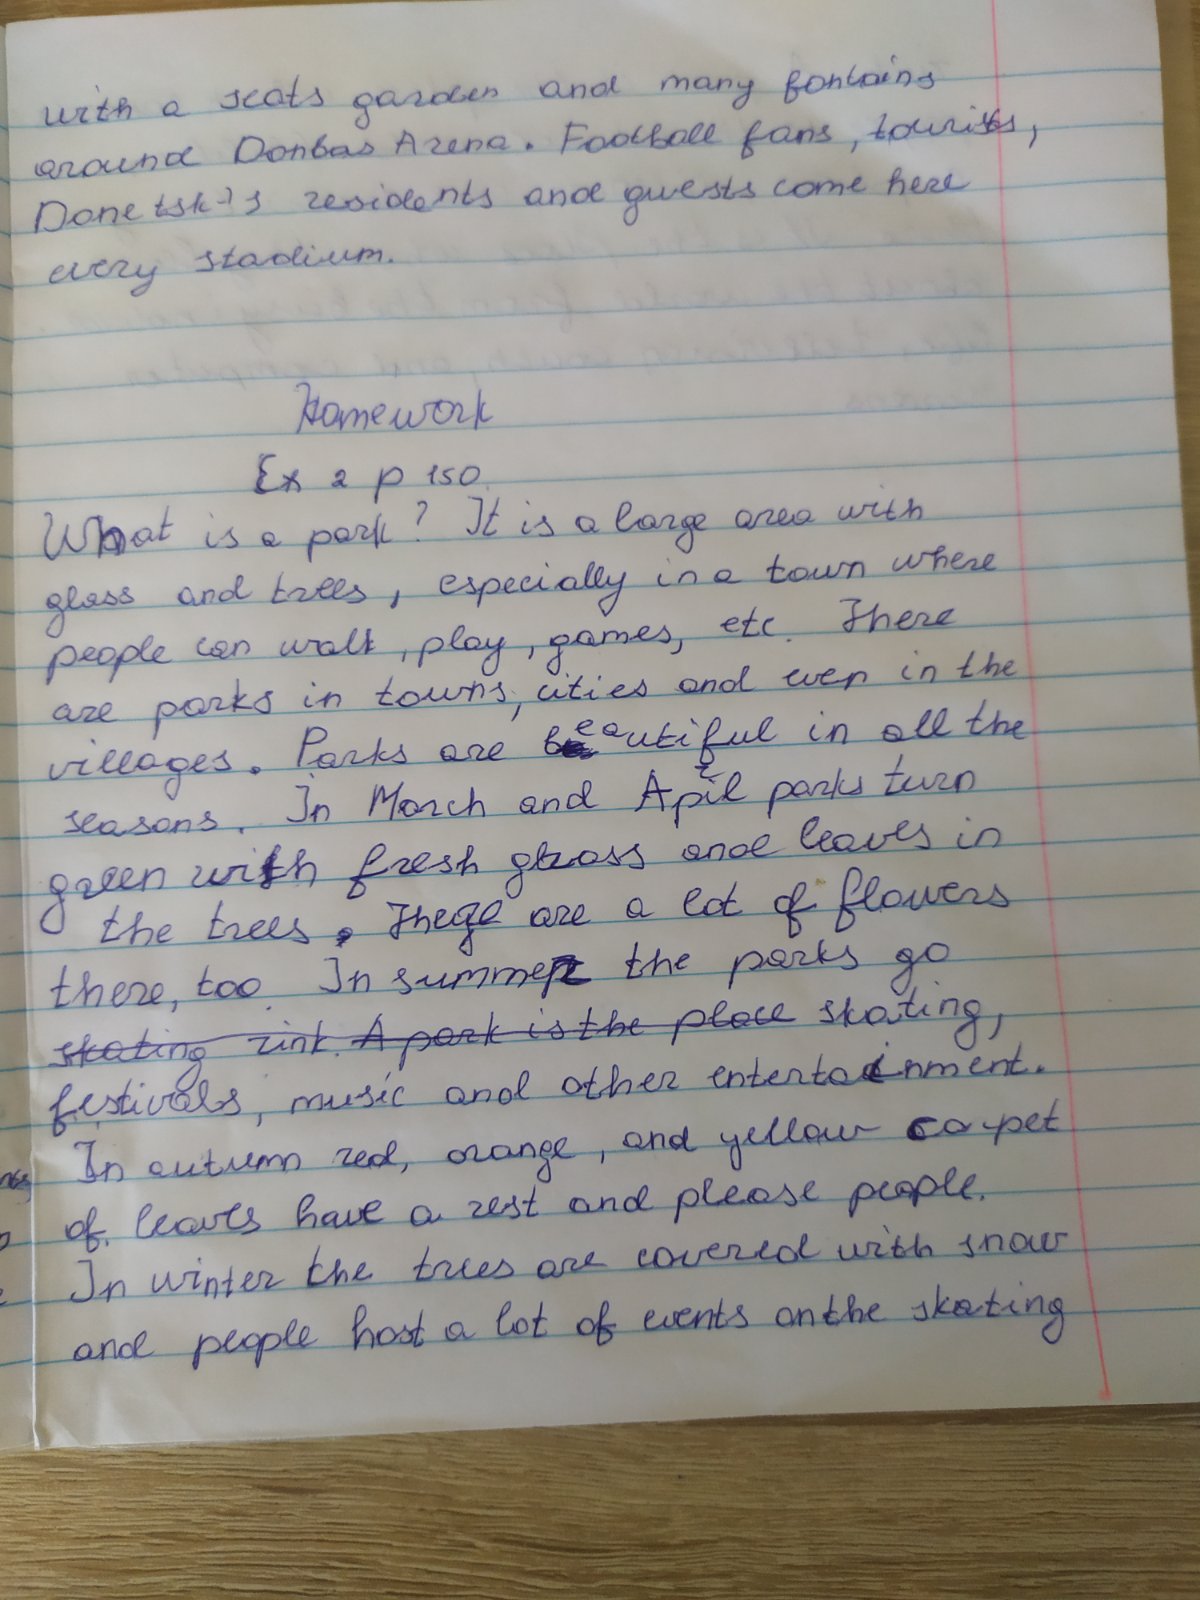 with a seats garden and many fontains
around Donbas Arena. Football fans, tourists,
Donetsk's residents and guests come here
every stadium.
Homework
Ex 2 p 150.
What is a park? It is a large area with
glass and trees, especially in a town where
people can walk, play, games, etc. There
are parks in towns, cities and even in the
villages. Parks are beautiful in all the
seasons. In March and April parks turn
green with fresh grass and leaves in
the trees. There are a lot of flowers
there, too. In summer the parks go
skating rink. A park is the place skating,
festivals, music and other entertainment.
In autumn red, orange, and yellow carpet
of leaves have a rest and please people.
In winter the trees are covered with snow
and people host a lot of events on the skating